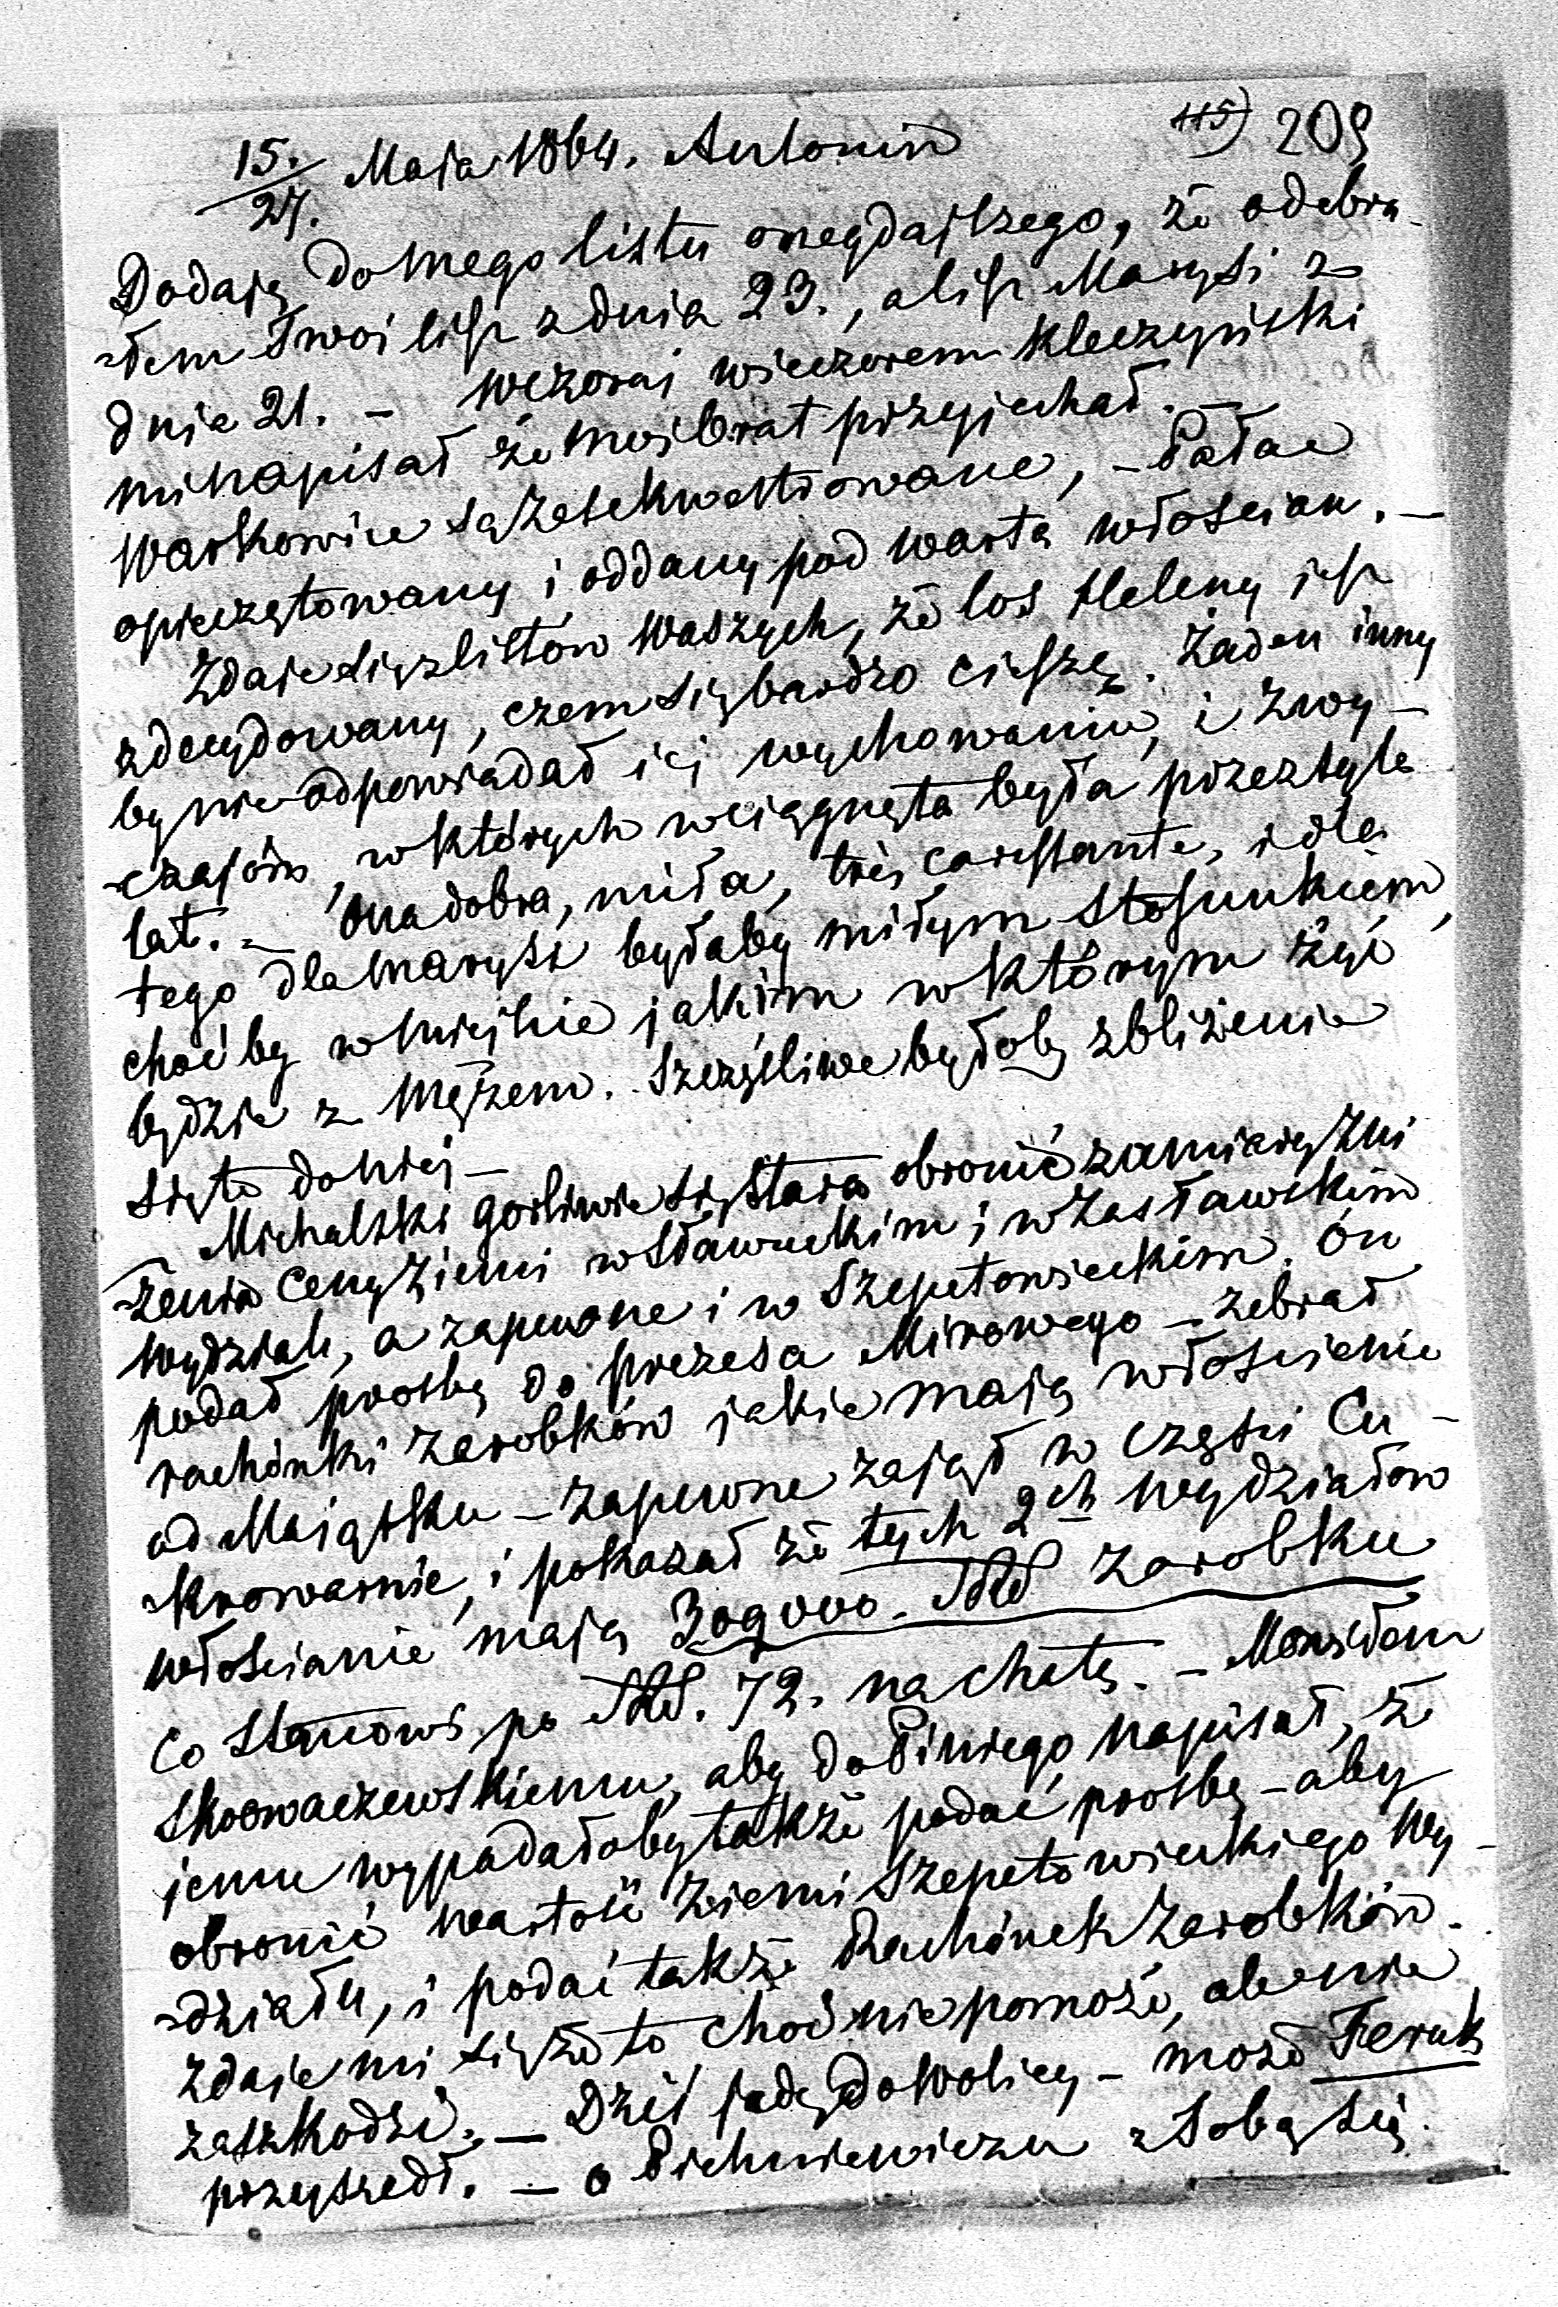 115) 209
15./27. Maja 1864. Antonin
Dodaję do mego listu onegdajszego, że odebra-
-łem Twoi list z dnia 23., a list Marysi z
dnia 21. – Wczoraj wieczorem Kleczyński
mi napisał że moi brat przyjechał. –
Warkowice są zasekwestrowane, – Pałac
opieczętowany i oddany pod wartę włościan. –
Zdaje się z listów Waszych, że los Heleny jest
zdecydowany, czem się bardzo cieszę. Żaden inny
by nie odpowiadał iej wychowaniu, i zwy-
-czajów, w których wciągnęta była przez tyle
lat. – Ona dobra, miła, très caressante, i dla
tego dla Marysi byłaby miłym stosunkiem,
choćby w mieście jakim w którym żyć
będzie z mężem. Szczęśliwe byłoby zbliżenie
się to do niej –
– Michalski gorliwie się stara obronić zamiary zni
-żenia ceny ziemi w Sławuckim i w Zasławskim
wydziale, a zapewne i w Szepetowieckim. On
podał prosbę do prezesa Mirowego – zebrał
rachónki zarobków jakie mają włościenie
od Maiątku – zapewne zajął w części Cu-
-krowarnie, i pokazał że tych 2ch wydziałow
włościanie mają 309000. RS zarobku
co stanowi po RS. 72. na chatę. – Mówiłem
Skowaczewskiemu, aby do Piniego napisał, że
jemu wypadałoby także podać prosbę – aby
obronić wartość ziemi Szepetowieckiego Wy-
-działu, i podać także Rachónek Zarobków.
zdaje mi się że to choć nie pomoże, ale nie
zaszkodzi. – Dziś jadę do Wolicy – może Feruk
przyszedł. – o Pichniewiczu z Sobą się